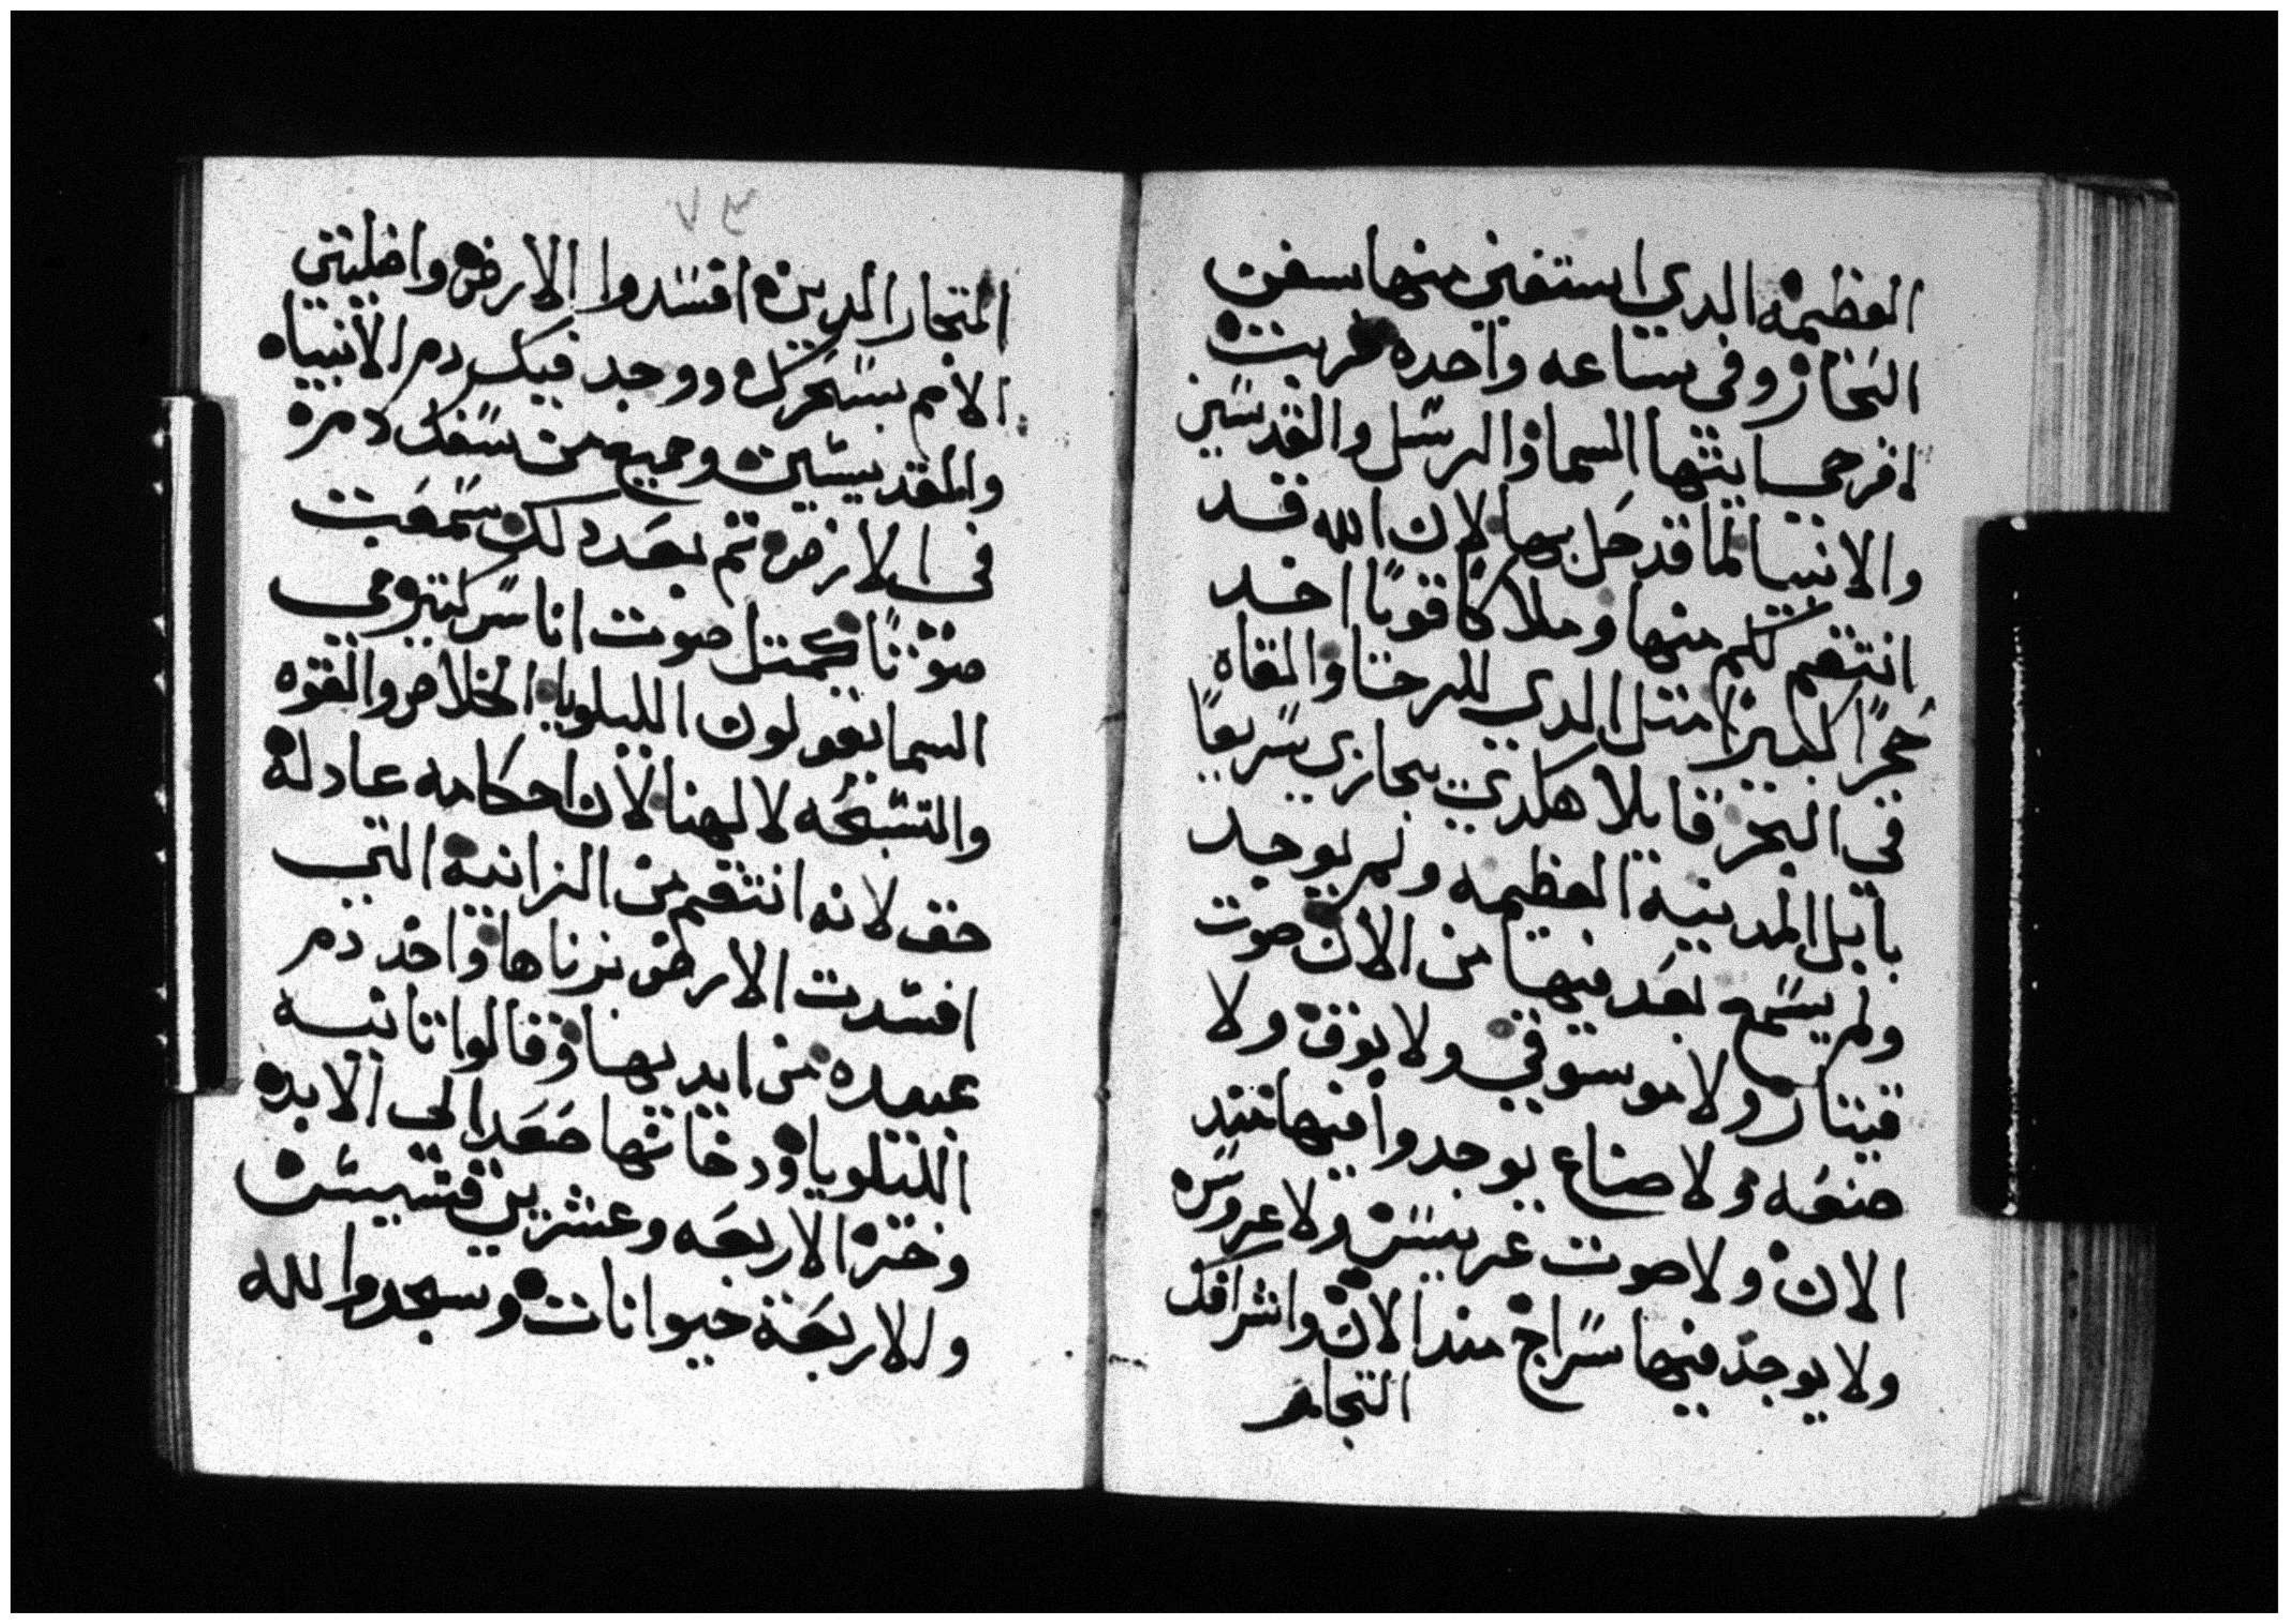 العظيمه الدي استغني منها سفن
البحار وفي ساعه واحده خربت
افرحي ايتها السما والرسل والقدسين
والانبيا لما قد حل بها لان الله قد
انتقم لكم منها وملاكا قويا اخد
حجرا كبيرا متل الدي للرحا والقاه
في البحر قايلا هكدي بجازي سريعا
بابل المدينه العظيمه ولم يوجد
ولم يسمع بعد فيها من الان صوت
قيتار ولا موسوقي ولا بوق ولا
صنعه ولا صناع يوجدوا فيها مند
الان ولا صوت عريس ولا عروسه
ولا يوجد فيها سراج مند الان واشرافك
التجار
٧٣
التجار الدين افسدوا الارض واضليتي
الامم بسحرك ووجد فيك دم الانبياه
والقديسين وجميع من سفك دمه
في الارض تم بعد دلك سمعت
صوتا كمتل صوت اناس كتير في
السما يقولون الليلويا الخلاص والقوه
والتسبحه لالهنا لان احكامه عادله
حق لانه انتقم من الزانيه التي
افسدت الارض بزناها واخد دم
عبيده من ايديها وقالوا تانيه
الليلويا ودخانها صعد الي الابد
وخر الاربعه وعشرين قسيس
والاربعة حيوانات وسجدوا لله